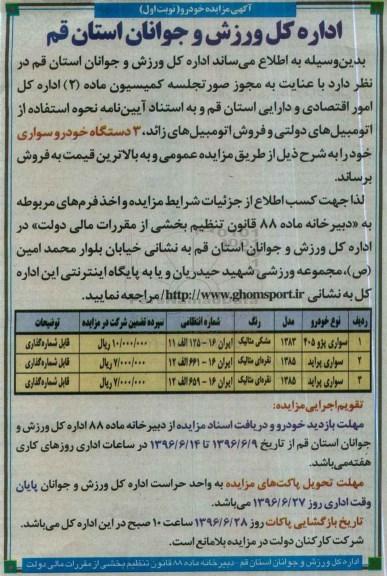 آگهی مزایده خودرو (نوبت اول)
اداره کل ورزش و جوانان استان قم
بدین‌وسیله به اطلاع می‌رساند اداره کل ورزش و جوانان استان قم در
نظر دارد با عنایت به مجوز صورتجلسه کمیسیون ماده (۲) اداره کل
امور اقتصادی و دارایی استان قم و به استناد آیین‌نامه نحوه استفاده از
اتومبیل‌های دولتی و فروش اتومبیل‌های زائد، ۳ دستگاه خودرو سواری
خود را به شرح ذیل از طریق مزایده عمومی و به بالاترین قیمت به فروش
برساند.
لذا جهت کسب اطلاع از جزئیات شرایط مزایده و اخذ فرم‌های مربوطه
به «دبیرخانه ماده ۸۸ قانون تنظیم بخشی از مقررات مالی دولت» در
اداره کل ورزش و جوانان استان قم به نشانی خیابان بلوار محمد امین
(ص)، مجموعه ورزشی شهید حیدریان و یا به پایگاه اینترنتی این اداره
کل به نشانی http://www.ghomsport.ir/ مراجعه نمایید.
ردیف نوع خودرو مدل رنگ شماره انتظامی سپرده تضمین شرکت در مزایده توضیحات
۱ سواری پژو ۴۰۵ ۱۳۸۳ مشکی متالیک ایران ۱۶ - ۱۲۵ الف ۱۱ ۱۰/۰۰۰/۰۰۰ ریال قابل شماره‌گذاری
۲ سواری پراید ۱۳۸۵ نقره‌ای متالیک ایران ۱۶ - ۶۶۱ الف ۱۲ ۷/۰۰۰/۰۰۰ ریال قابل شماره‌گذاری
۳ سواری پراید ۱۳۸۵ نقره‌ای متالیک ایران ۱۶ - ۶۵۹ الف ۱۲ ۷/۰۰۰/۰۰۰ ریال قابل شماره‌گذاری
تقویم اجرایی مزایده:
مهلت بازدید خودرو و دریافت اسناد مزایده از دبیرخانه ماده ۸۸ اداره کل ورزش و
جوانان استان قم از تاریخ ۱۳۹۶/۶/۹ تا ۱۳۹۶/۶/۱۴ در ساعات اداری روزهای کاری
هفته می‌باشد.
مهلت تحویل پاکت‌های مزایده به واحد حراست اداره کل ورزش و جوانان پایان
وقت اداری روز ۱۳۹۶/۶/۲۷ می‌باشد.
تاریخ بازگشایی پاکات روز ۱۳۹۶/۶/۲۸ ساعت ۱۰ صبح در این اداره کل می‌باشد.
شرکت کارکنان دولت در مزایده بلامانع است.
اداره کل ورزش و جوانان استان قم - دبیرخانه ماده ۸۸ قانون تنظیم بخشی از مقررات مالی دولت